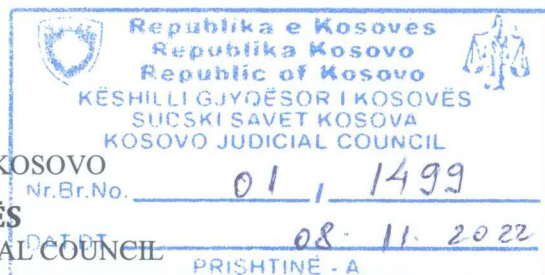 Republika e Kosovës
Republika Kosovo
Republic of Kosovo
KËSHILLI GJYQËSOR I KOSOVËS
SUDSKI SAVET KOSOVA
KOSOVO JUDICIAL COUNCIL
KOSOVO
Nr.Br.No. 01 / 1499
ËS
DAT.DT. 08. 11. 2022
AL COUNCIL
PRISHTINË - A